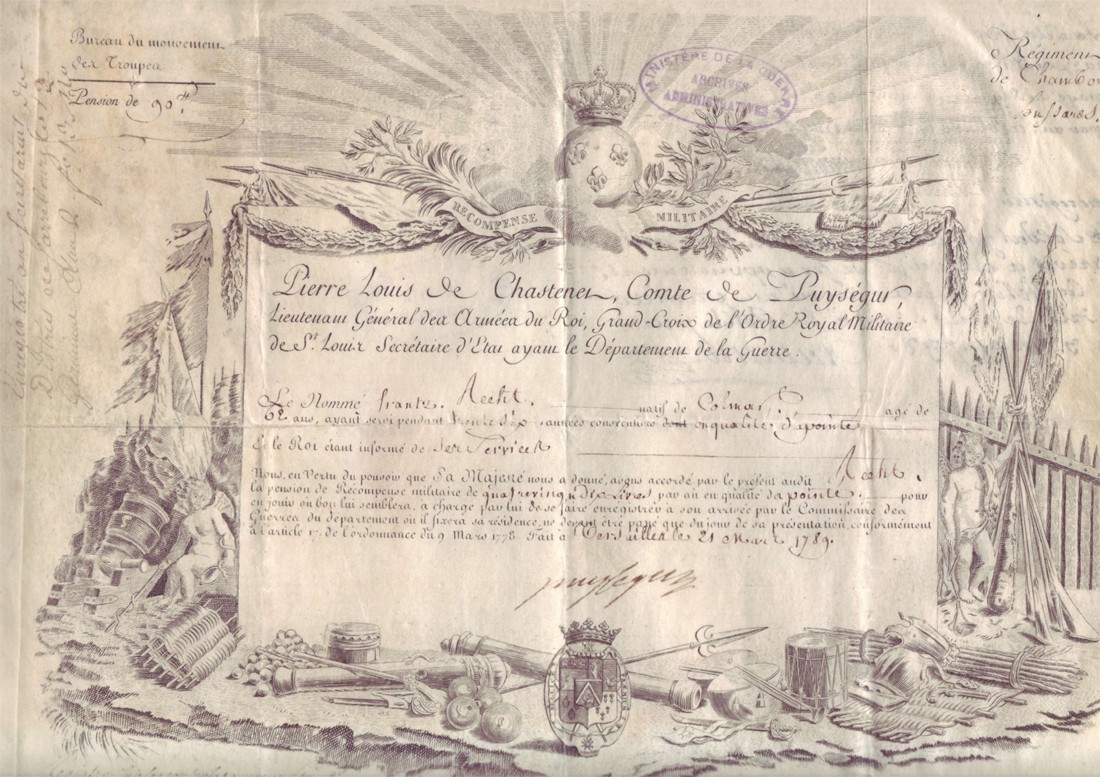 Bureau du mouvement
des Troupes
Pension de 90
Régiment
de
MINISTÈRE DE LA GUERRE
ARCHIVES
ADMINISTRATIVES
RECOMPENSE MILITAIRE
Pierre Louis de Chastenet, Comte de Puységur,
Lieutenant Général des Armées du Roi, Grand-Croix de l'Ordre Royal Militaire
de St. Louis Secrétaire d'Etat ayant le Département de la Guerre.
Le Nommé frantz Recht natif de Colmar agé de
62 ans, ayant servi pendant années consécutives dont en qualité d'apointé
Et le Roi étant informé de ses Services
Nous, en Vertu du pouvoir que Sa Majesté nous a donné, avons accordé par le présent audit Recht.
la pension de Récompense militaire de quatrevingt dix Livres par an en qualité d'apointé. pour
en jouir où bon lui semblera, à charge par lui de se faire enregistrer à son arrivée par le Commissaire des
Guerres du département où il fixera sa résidence, ne devant être payé que du jour de sa présentation, conformément
à l'article 17. de l'ordonnance du 9 Mars 1778. Fait à Versailles le 21 Mars 1789.
puysegur